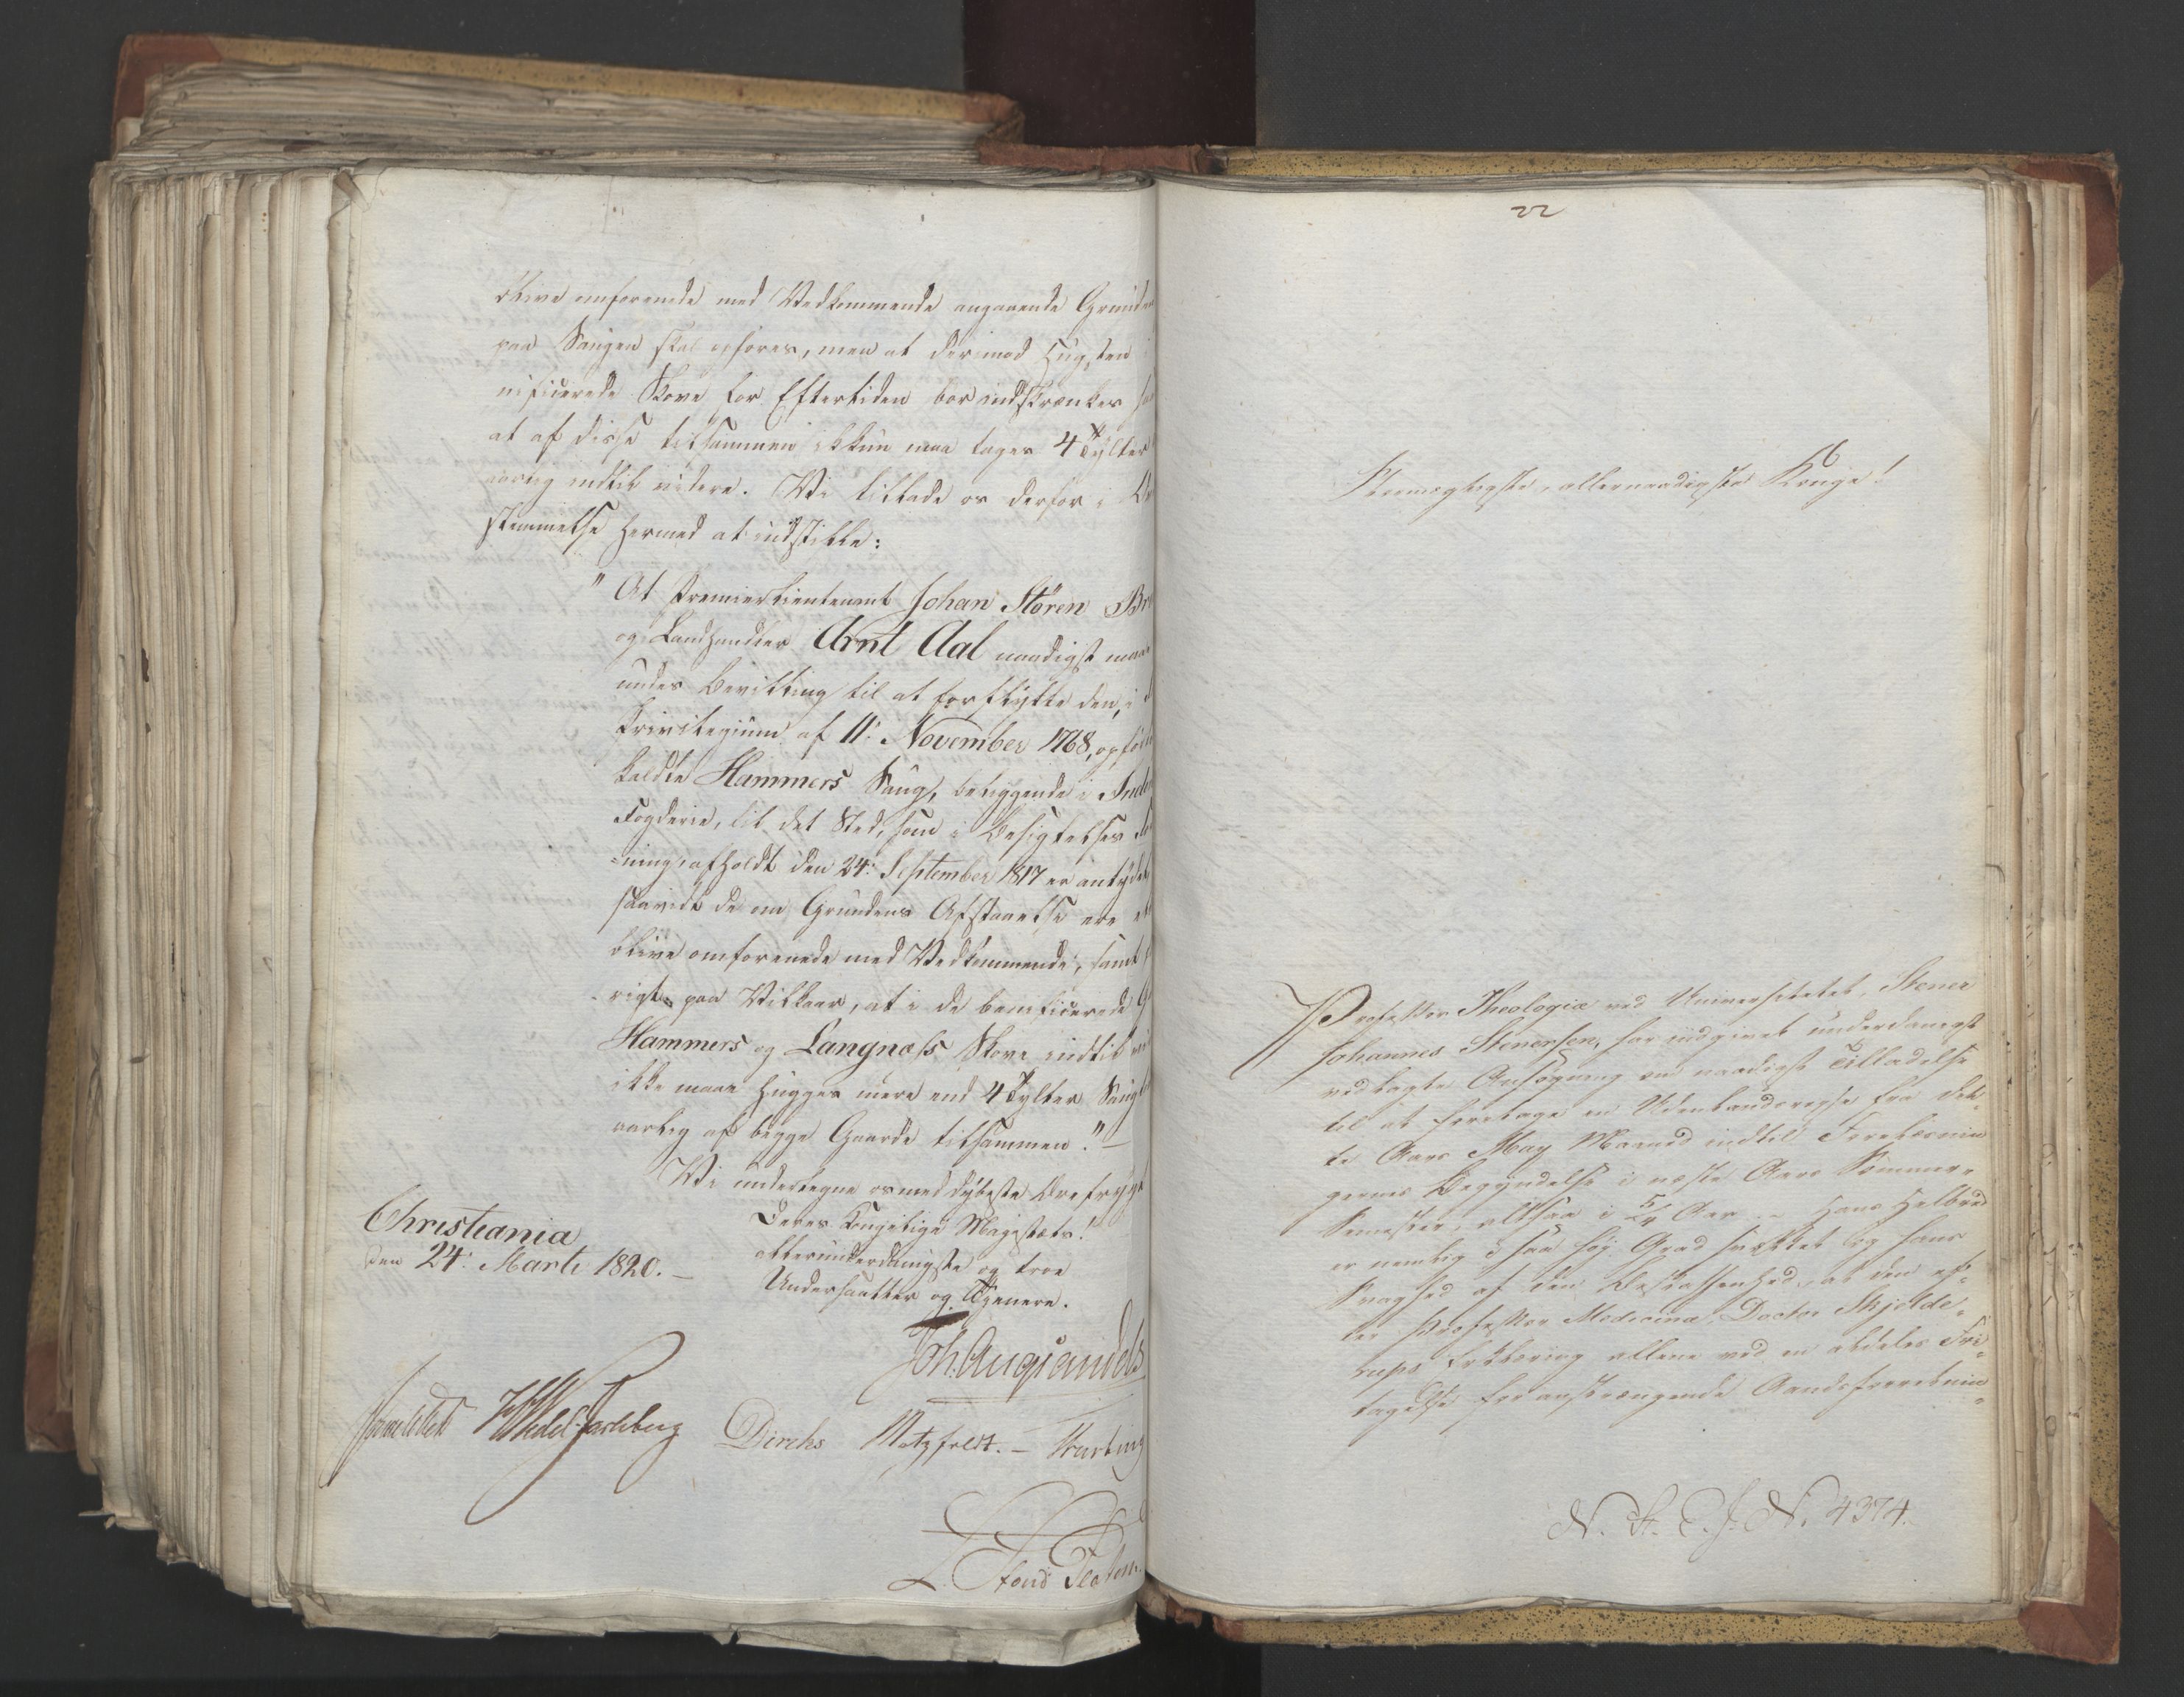 blive omforenede med Vedkommende angaaende Grunden
paa Saugen skal opføres, men at derimod Hugsten i
nificerede Skove for Eftertiden bør indskrænkes saa
at af disse tilsammen ikkun maa tages 4 Tylter
aarlig indtil videre. Vi tillade os derfor i Ov
stemmelse hermed at indstille:
"At Premierlieutenant Johan Stören Br
og Landhandler Arnt Aal naadigst maae
undes Bevilling til at forflytte den, i
Privilegium af 11te November 1768, opfør
kaldte Hammers Saug, beliggende i Inder
Fogderie, til det Sted, som i Besigtelses For
=ning, afholdt den 24de September 1817 er antydet
saavidt de om Grundens Afstaaelse ere el
blive omforenede med Vedkommende, samt
rigt paa Vilkaar, at i de benificerede G
Hammers og Langnæss Skove indtil vi
ikke maae hugges mere end 4 Tylter Saug
aarlig af begge Gaarde tilsammen."
Vi undertegne os med dybeste Ærefrygt
Deres Kongelige Majestæts!
allerunderdanigste og troe
Undersaatter og Tjenere.
Christiania
den 24de Marti 1820.
Joh. Aug. Sandels
Sommerhielm HWedel Jarlsberg Diriks Motzfeldt. Krafting
L. Stoud Platou
22
Stormægtigste, allernaadigste Konge!
Professor Theologiæ ved Universitetet, Stener
Johannes Stenersen, har indgivet underdanigst
vedlagte Ansøgning om naadigst Tilladelse
til at foretage en Udenlandsreyse fra det-
te Aars May Maaned indtil Forelæsnin-
gernes Begyndelse i næste Aars Sommer-
Semester, altsaa i 5/4 Aar. – Hans Helbred
er nemlig i saa høj Grad svækket og hans
Svaghed af den Beskaffenhed, at den ef-
ter Professor Medicinæ, Doctor Skjelde-
rups Erklæring allene ved en aldeles Fri-
tagelse for anstrængende Aandsforretnin-
N. St. E. J. N. 4374.